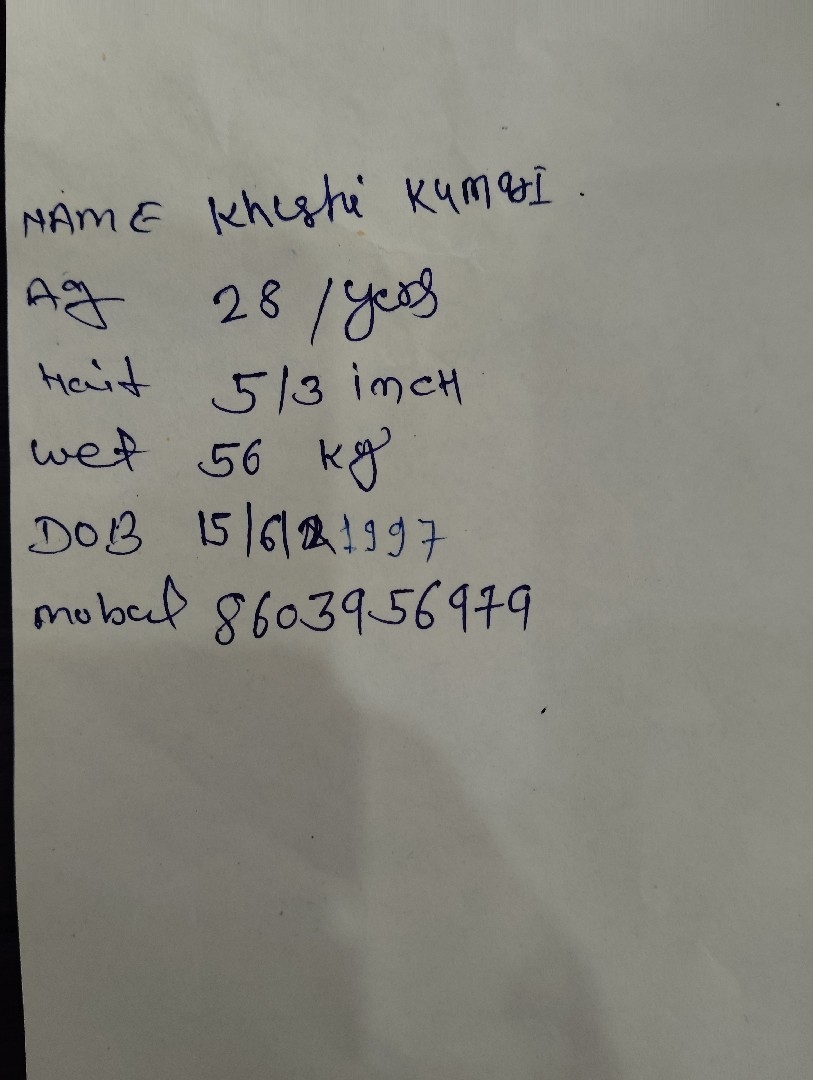 NAME Khushi KUMARI .
Ag 28 / years
Hait 5/3 inch
wet 56 kg
DOB 15/6/1997
mobal 8603956979